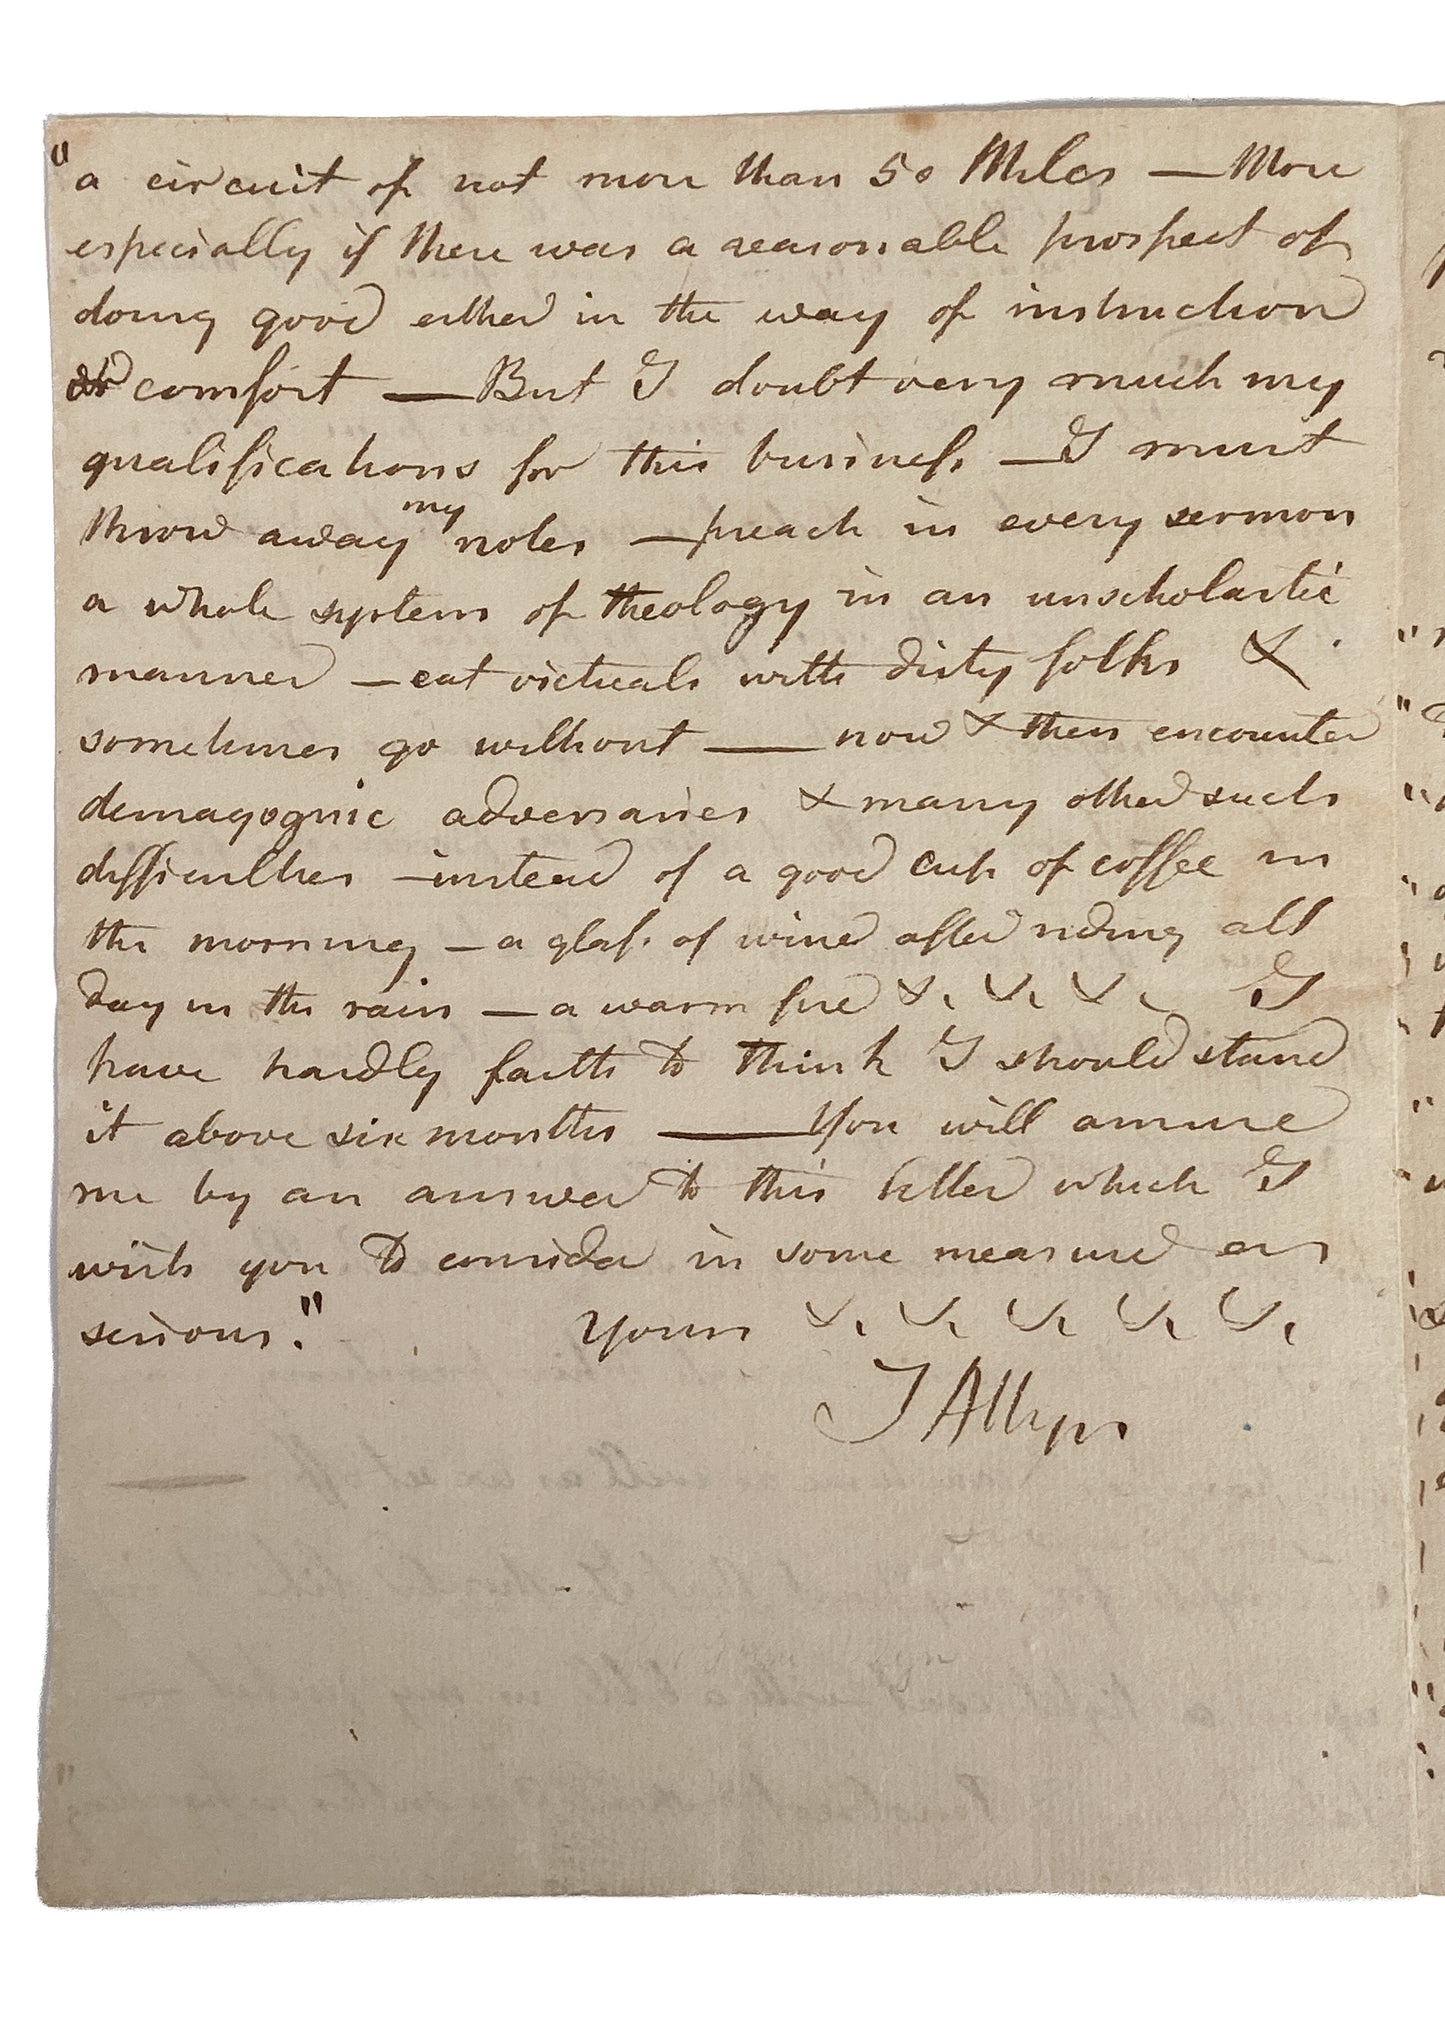 "a circuit of not more than 50 Miles — More
especially if there was a reasonable prospect of
doing good either in the way of instruction
or comfort — But I doubt very much my
qualifications for this business — I must
throw away my notes — preach in every sermon
a whole system of theology in an unscholastic
manner — eat victuals with dirty folks &
sometimes go without — now & then encounter
demagoguic adversaries & many other such
difficulties — instead of a good cup of coffee in
the morning — a glass of wine after riding all
day in the rain — a warm fire &. &. &. I
have hardly faith to think I should stand
it above six months — You will amuse
me by an answer to this letter which I
wish you to consider in some measure as
serious." Yours &. &. &. &. &.
J Allyn